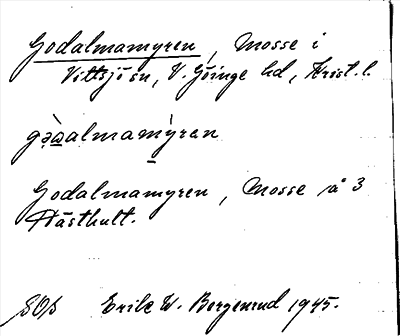 Godalmamyren, Mosse i
Vittsjö sn, V. Göinge hd, Krist. l.
gə̀ɷalmamýren
Godalmamyren, Mosse på 3
Hästhult.
SOs Erik W. Bergenrud 1945.